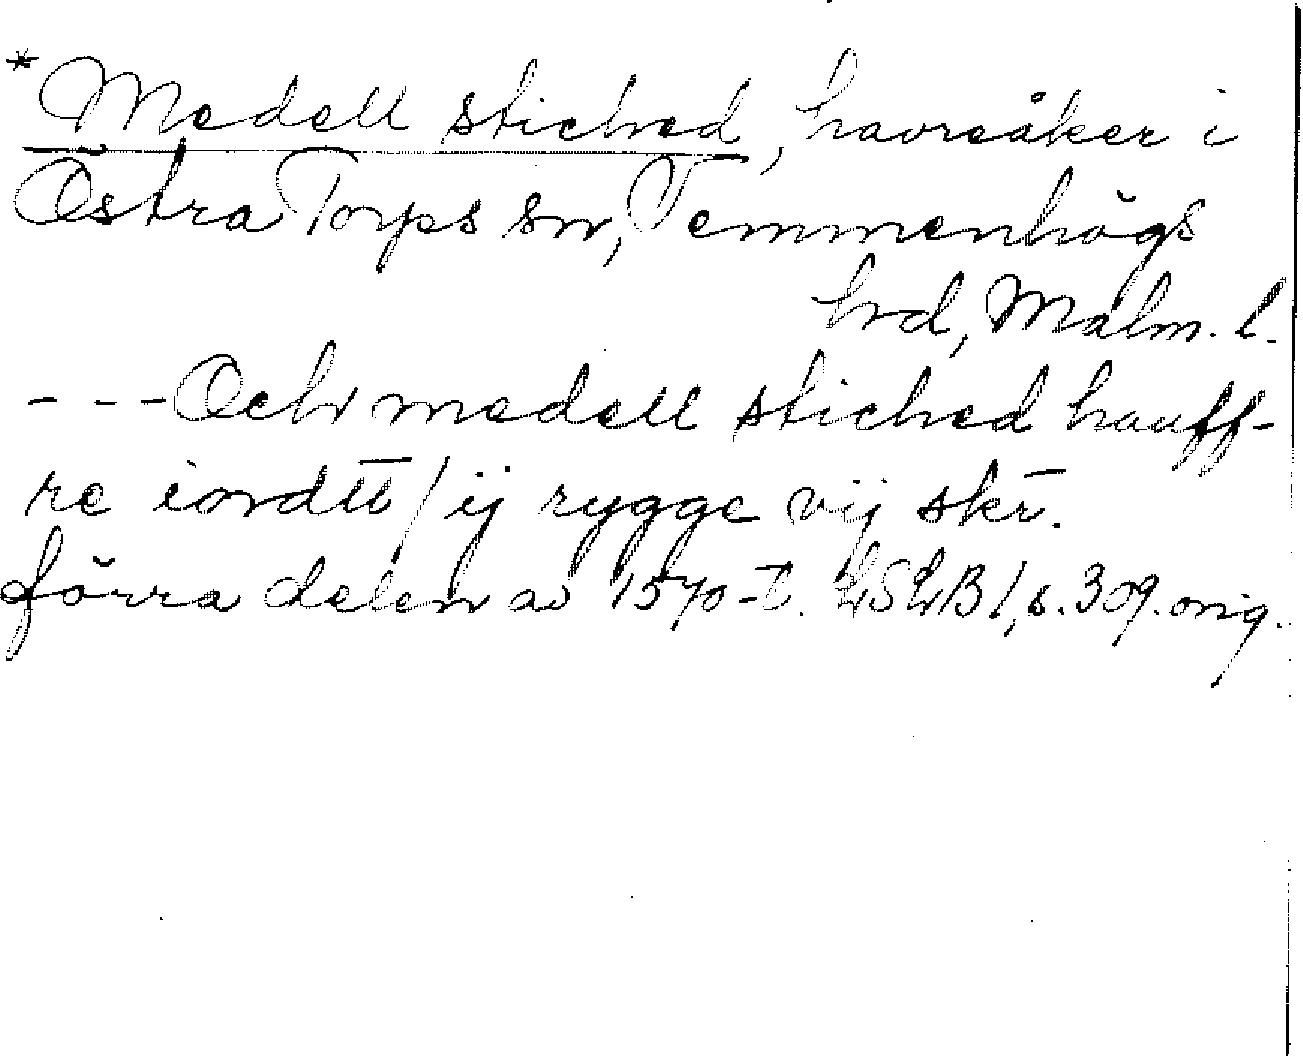 *Medell stiched, havreåker i
Östra Torps sn, Vemmenhögs
hd, Malm. l.
---Och medell stiched hauff-
re iordtt / ij rygge vij skr̄.
förra delen av 1570-t. LSLB 1, s. 309. orig.